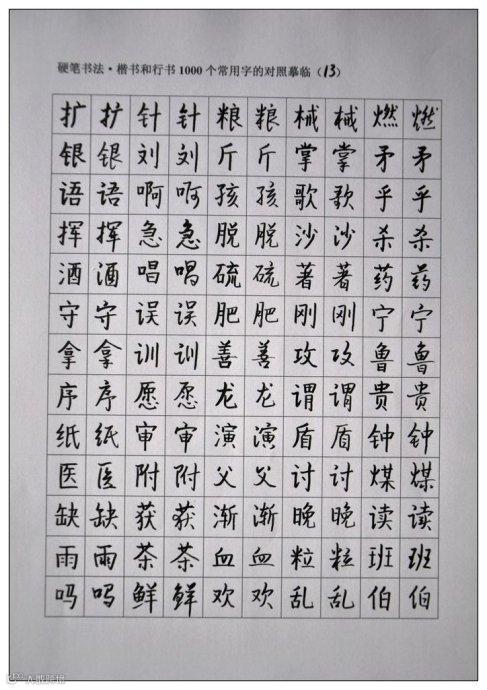 硬笔书法·楷书和行书1000个常用字的对照摹临（13）
扩扩针针粮粮械械燃燃
银银刘刘斤斤掌掌矛矛
语语啊啊孩孩歌歌乎乎
挥挥急急脱脱沙沙杀杀
酒酒唱唱硫硫著著药药
守守误误肥肥刚刚宁宁
拿拿训训善善攻攻鲁鲁
序序愿愿龙龙谓谓贵贵
纸纸审审演演盾盾钟钟
医医附附父父讨讨煤煤
缺缺获获渐渐晚晚读读
雨雨茶茶血血粒粒班班
吗吗鲜鲜欢欢乱乱伯伯